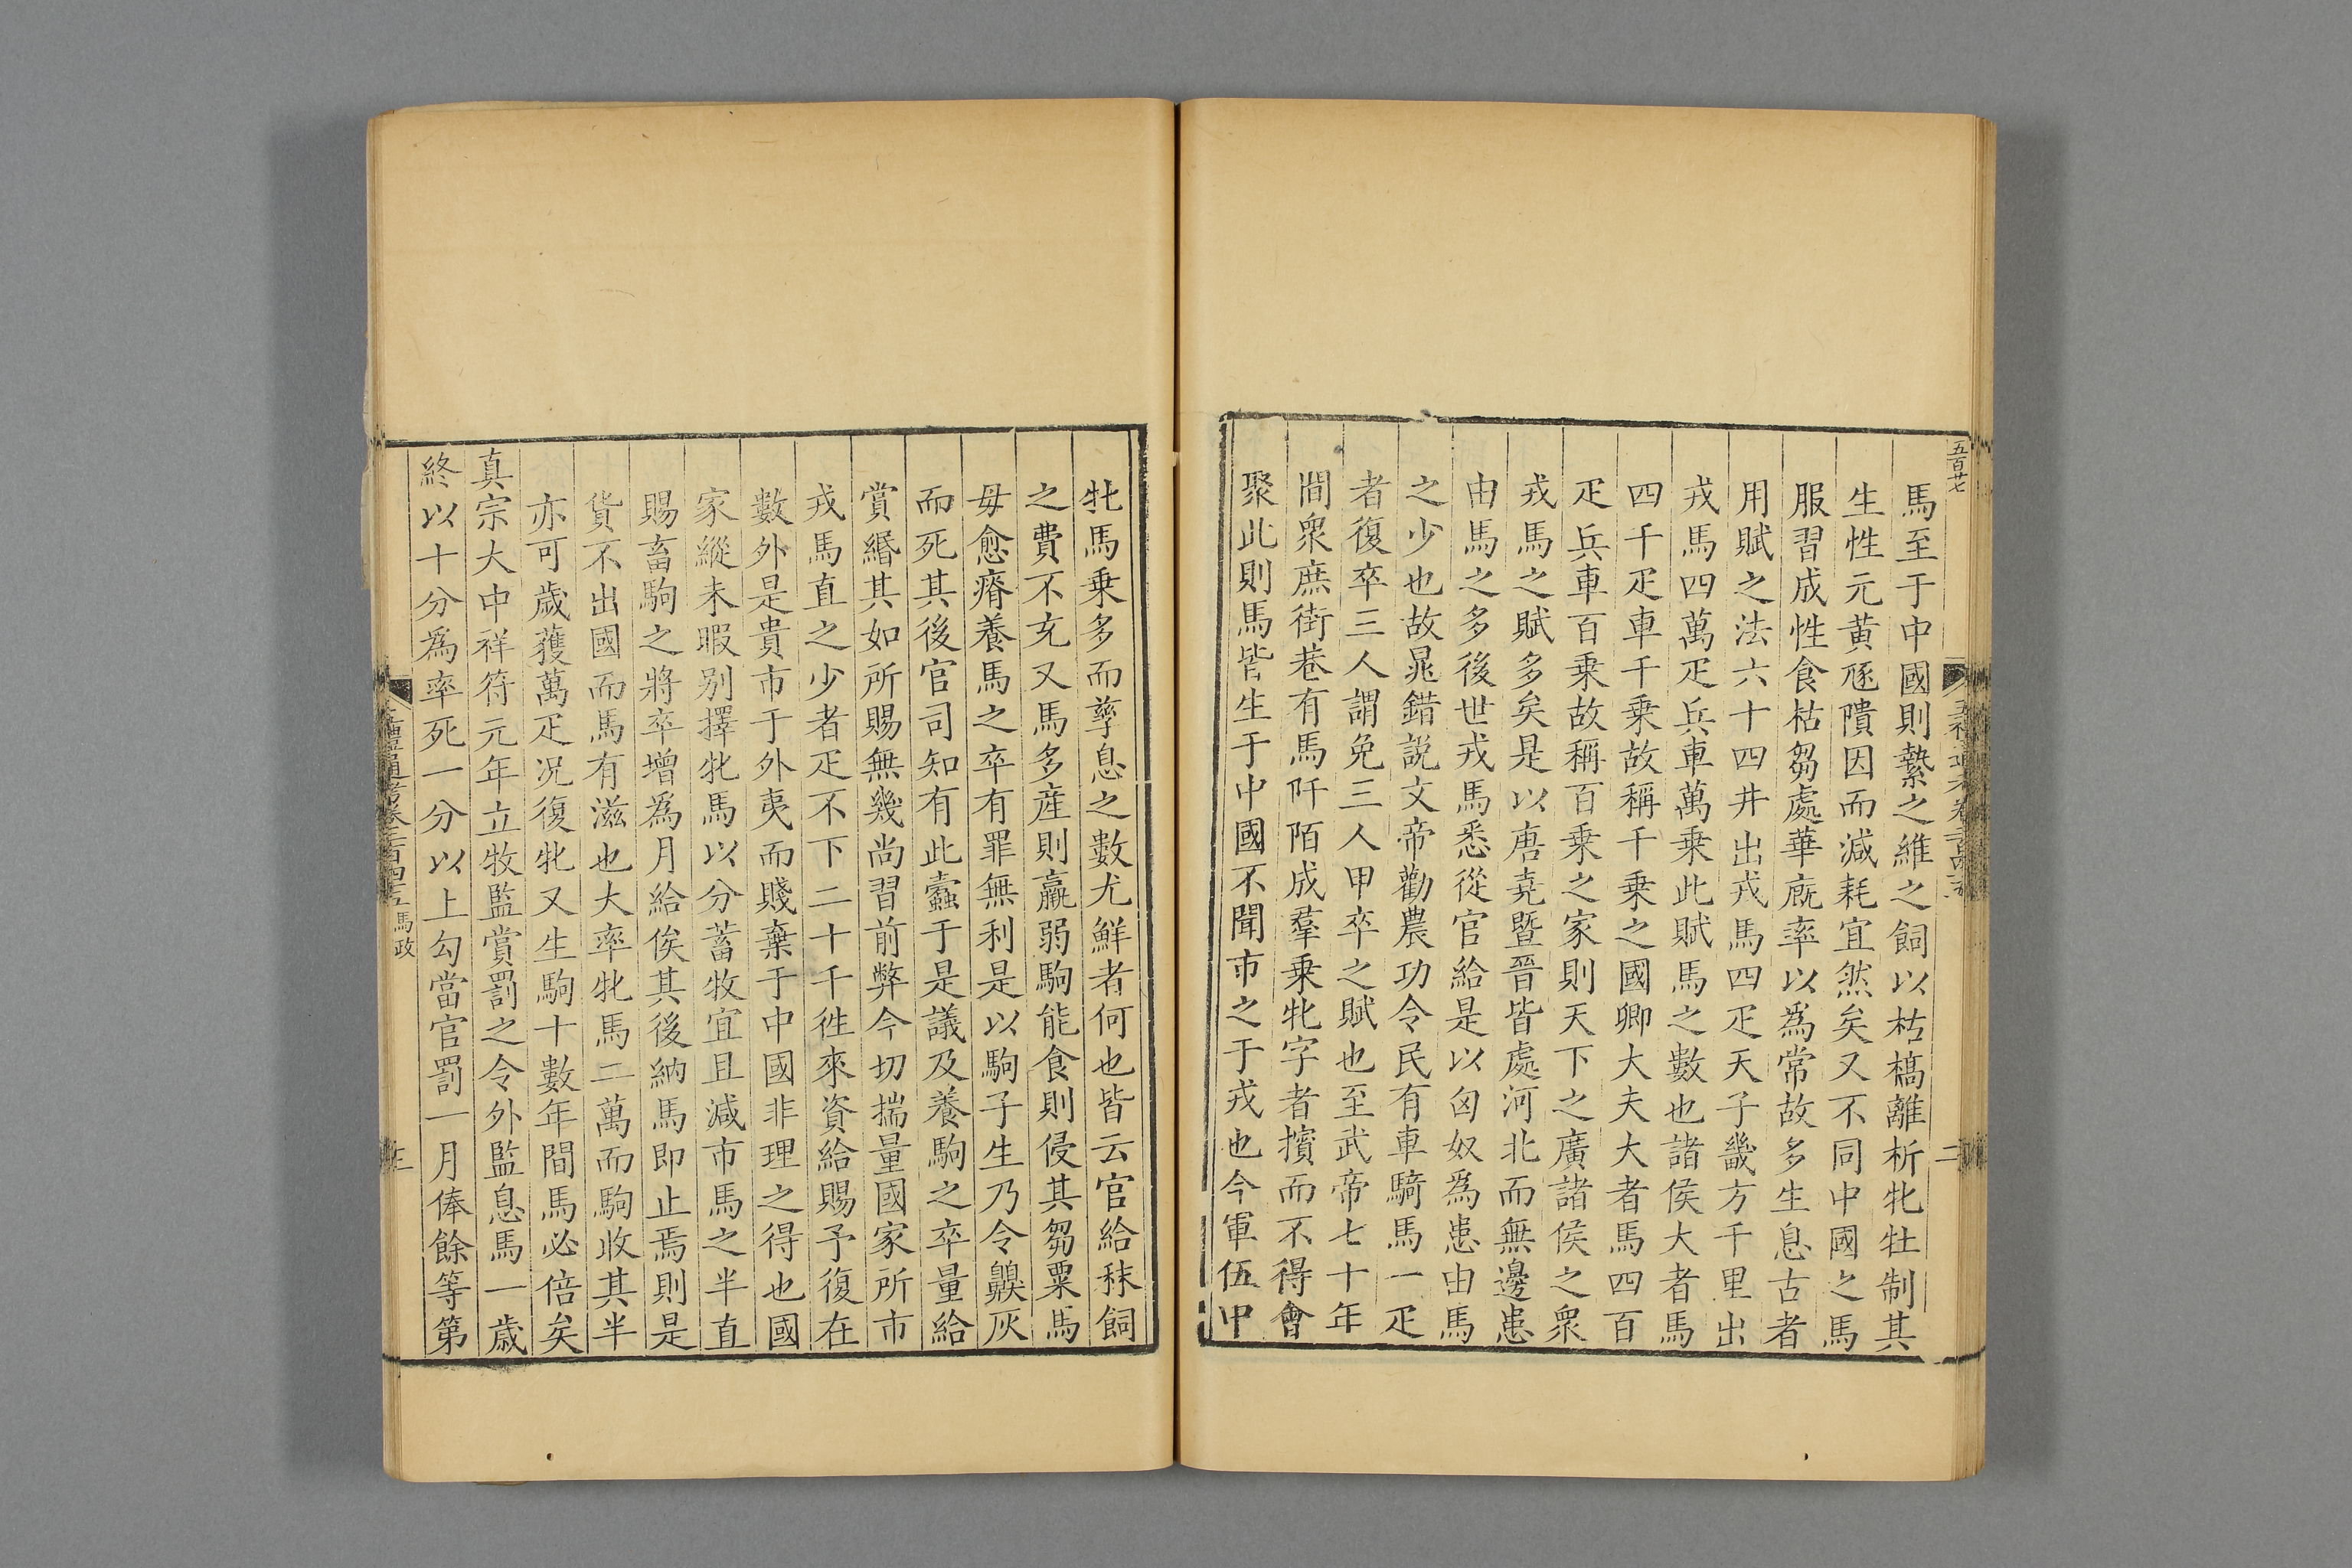 五百廿七
馬至于中國則縶之維之飼以枯槁離析牝牡制其
生性元黄虺隤因而減耗宜然矣又不同中國之馬
服習成性食枯芻處華廐率以爲常故多生息古者
用賦之法六十四井出戎馬四疋天子畿方千里出
戎馬四萬疋兵車萬乗此賦馬之數也諸侯大者馬
四千疋車千乗故稱千乗之國卿大夫大者馬四百
疋兵車百乗故稱百乗之家則天下之廣諸侯之衆
戎馬之賦多矣是以唐堯曁晉皆處河北而無邊患
由馬之多後世戎馬悉從官給是以匈奴爲患由馬
之少也故晁錯説文帝勸農功令民有車騎馬一疋
者復卒三人謂免三人甲卒之賦也至武帝七十年
間衆庶街巷有馬阡陌成羣乗牝字者擯而不得會
聚此則馬皆生于中國不聞市之于戎也今軍伍中
牝馬乗多而孳息之數尤鮮者何也皆云官給秣飼
之費不充又馬多産則羸弱駒能食則侵其芻粟馬
毋愈瘠養馬之卒有罪無利是以駒子生乃令齅灰
而死其後官司知有此蠹于是議及養駒之卒量給
賞緡其如所賜無幾尚習前弊今切揣量國家所市
戎馬直之少者疋不下二十千徃來資給賜予復在
數外是貴市于外夷而賤棄于中國非理之得也國
家縱未暇别擇牝馬以分蓄牧宜且減市馬之半直
賜畜駒之將卒增爲月給俟其後納馬即止焉則是
貨不出國而馬有滋也大率牝馬二萬而駒收其半
亦可歲獲萬疋况復牝又生駒十數年間馬必倍矣
真宗大中祥符元年立牧監賞罰之令外監息馬一歲
終以十分爲率死一分以上勾當官罰一月俸餘等第
禮通考卷二百四十五 馬政